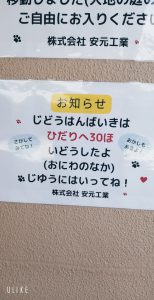 移動しました(大地の庭の
ご自由にお入りください
株式会社 安元工業
お知らせ
じどうはんばいきは
ひだりへ30ぽ
いどうしたよ
(おにわのなか)
じゆうにはいってね!
株式会社 安元工業
さがして
みてね!
おかしも
あるよ!
ULIKE